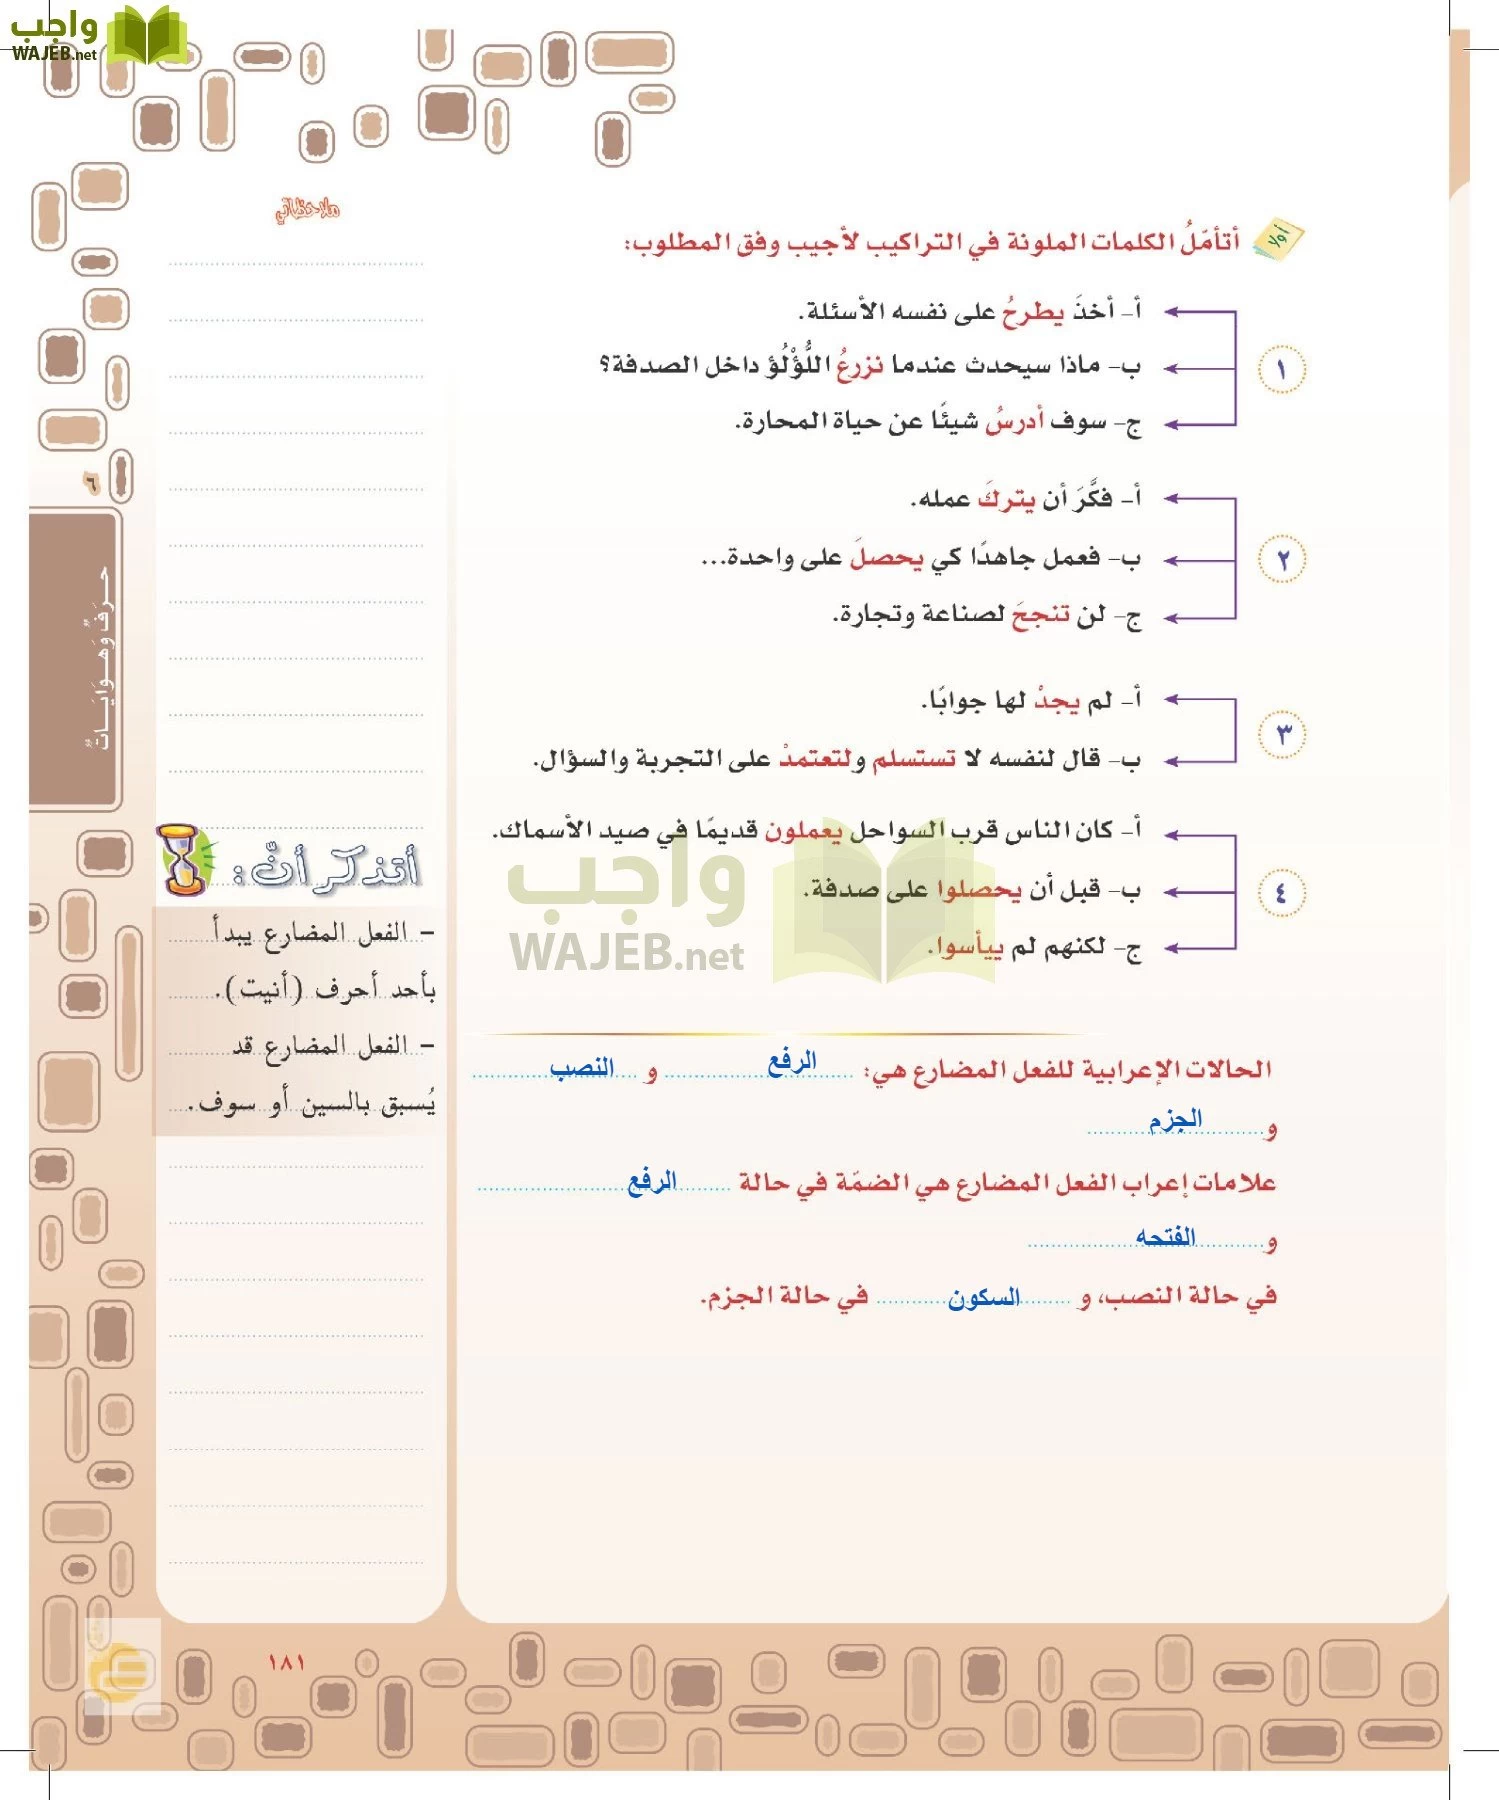 واجب
WAJEB.net
ملاحظاتي
أولا
أتأمّلُ الكلمات الملونة في التراكيب لأجيب وفق المطلوب:
١
أ- أخذَ يطرحُ على نفسه الأسئلة.
ب- ماذا سيحدث عندما نزرعُ اللُّؤْلُؤ داخل الصدفة؟
ج- سوف أدرسُ شيئًا عن حياة المحارة.
٢
أ- فكَّرَ أن يتركَ عمله.
ب- فعمل جاهدًا كي يحصلَ على واحدة...
ج- لن تنجحَ لصناعة وتجارة.
٣
أ- لم يجدْ لها جوابًا.
ب- قال لنفسه لا تستسلم ولتعتمدْ على التجربة والسؤال.
٤
أ- كان الناس قرب السواحل يعملون قديمًا في صيد الأسماك.
ب- قبل أن يحصلوا على صدفة.
ج- لكنهم لم ييأسوا.
واجب
WAJEB.net
الحالات الإعرابية للفعل المضارع هي: الرفع و النصب
و الجزم
علامات إعراب الفعل المضارع هي الضمّة في حالة الرفع
و الفتحه
في حالة النصب، و السكون في حالة الجزم.
أتذكر أنّ:
- الفعل المضارع يبدأ
بأحد أحرف (أنيت).
- الفعل المضارع قد
يُسبق بالسين أو سوف.
٦
حِرَفٌ وَهِوَايَاتٌ
١٨١